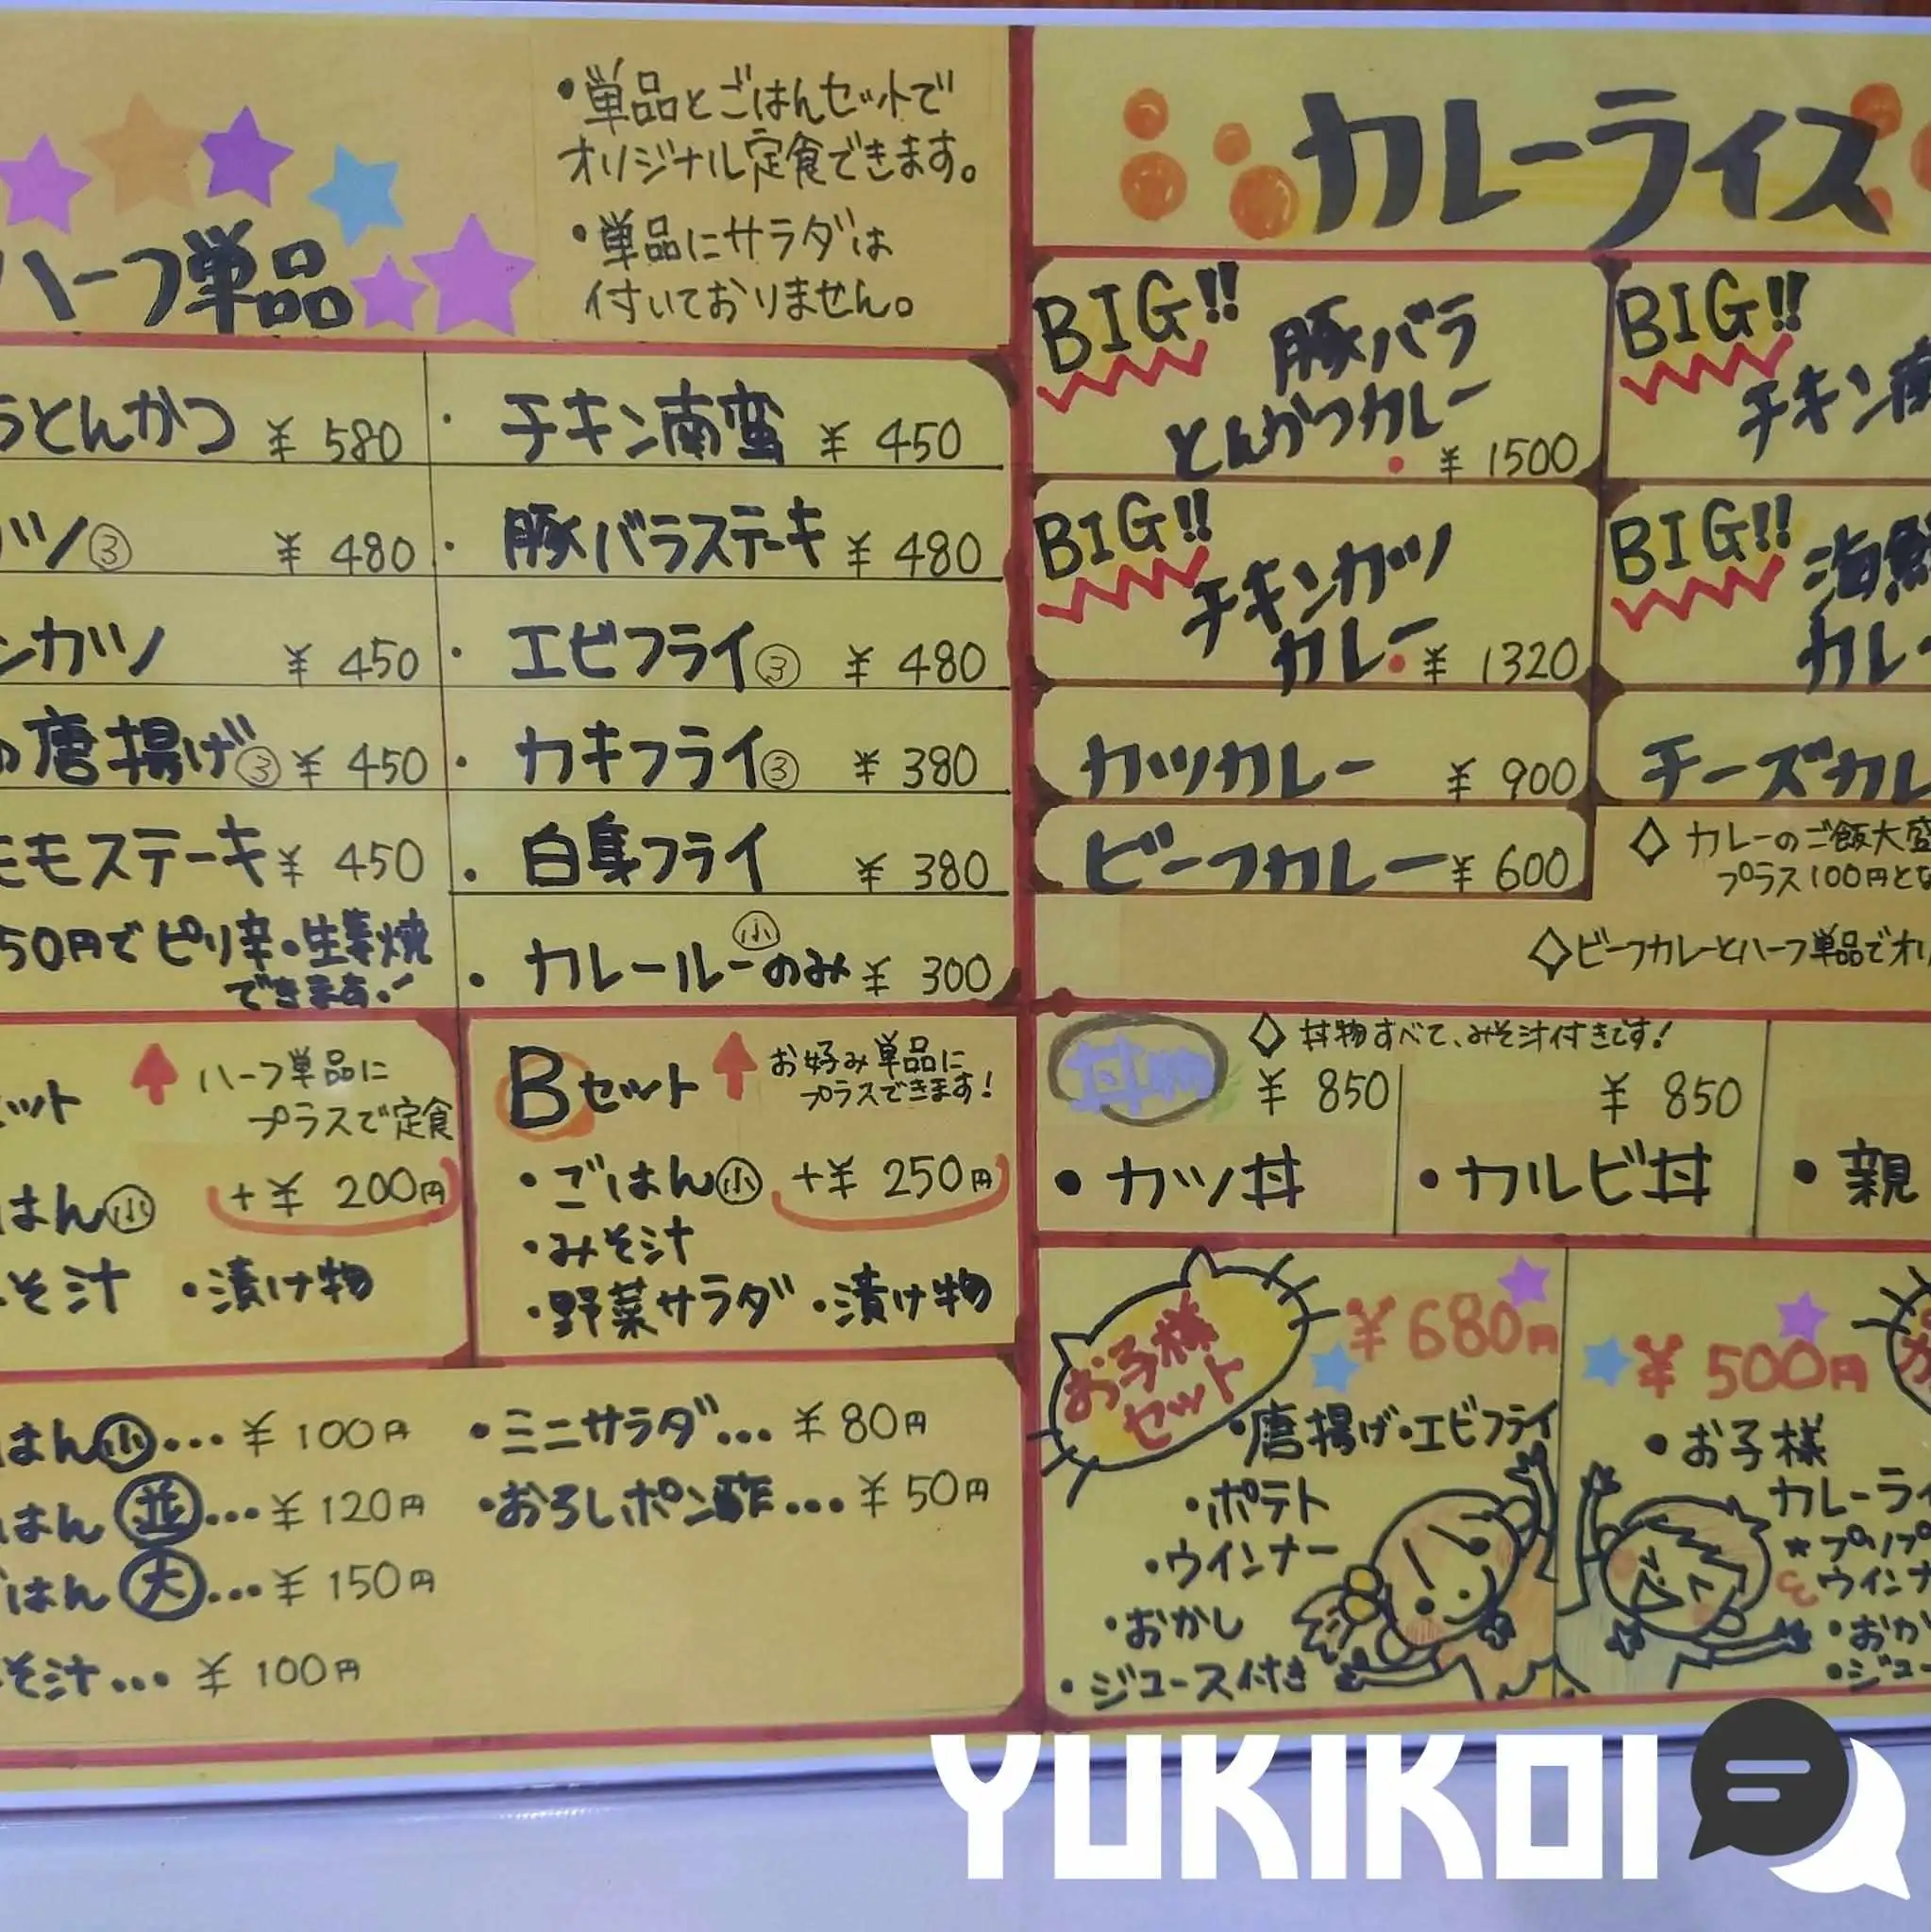 ハーフ単品
・単品とごはんセットで
オリジナル定食できます。
・単品にサラダは
付いておりません。
とんかつ ¥580
ツ③ ¥480
ンカツ ¥450
の唐揚げ③ ¥450
モモステーキ ¥450
50円でピリ辛・生姜焼
できます!
・チキン南蛮 ¥450
・豚バラステーキ ¥480
・エビフライ③ ¥480
・カキフライ③ ¥380
・白身フライ ¥380
・カレールー小のみ ¥300
セット ↑ ハーフ単品に
プラスで定食
はん小 +¥200円
そ汁 ・漬け物
Bセット ↑ お好み単品に
プラスできます!
・ごはん小 +¥250円
・みそ汁
・野菜サラダ ・漬け物
はん小...¥100円
はん並...¥120円
ごはん大...¥150円
そ汁...¥100円
・ミニサラダ...¥80円
・おろしポン酢...¥50円
カレーライス
BIG!! 豚バラ
とんかつカレー
¥1500
BIG!!
チキン南
BIG!! チキンカツ
カレー ¥1320
BIG!! 海鮮
カレー
カツカレー ¥900
チーズカレ
ビーフカレー ¥600
◇カレーのご飯大盛
プラス100円とな
◇ビーフカレーとハーフ単品でオリ
丼物 ◇丼物すべて、みそ汁付きです!
¥850
・カツ丼
¥850
・カルビ丼
・親
お子様
セット
¥680円
・唐揚げ・エビフライ
・ポテト
・ウインナー
・おかし
・ジュース付き
¥500円
・お子様
カレーライ
★プリプ
ウインナ
・おか
・ジュー
YUKIKOI